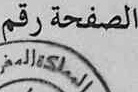 الصفحة رقم
المملكة المغر